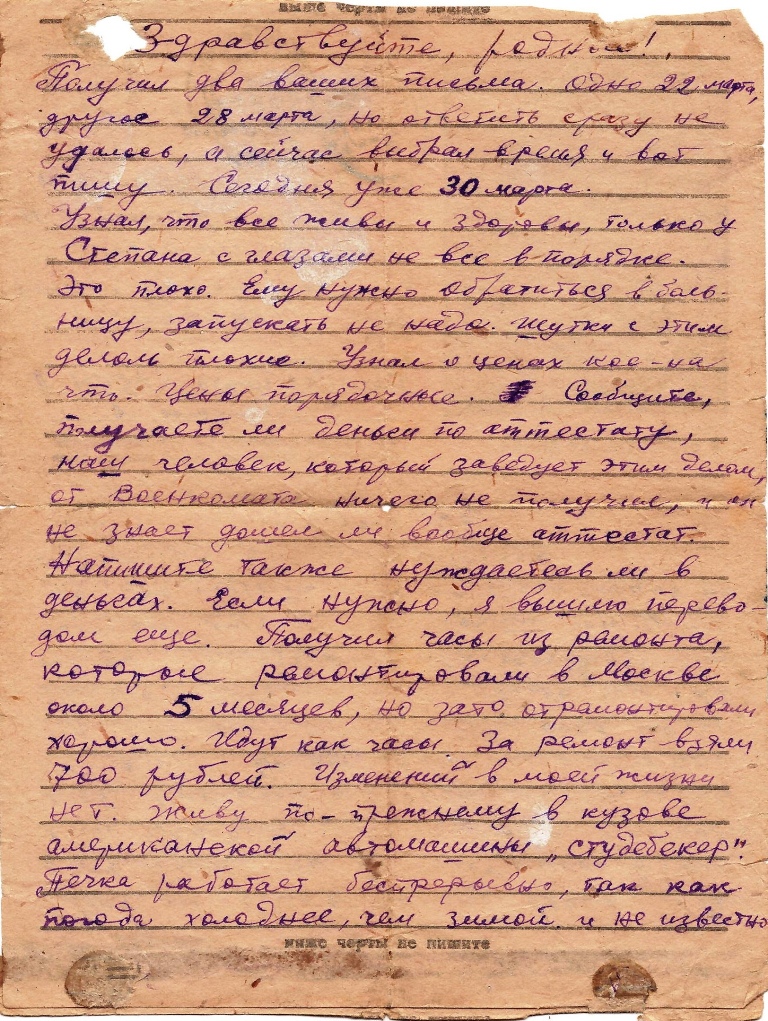 ниже черты не пишите
Здравствуйте, родные!
Получил два ваших письма. Одно 22 марта,
другое 28 марта, но ответить сразу не
удалось, а сейчас выбрал время и вот
пишу. Сегодня уже 30 марта.
Узнал, что все живы и здоровы, только у
Степана с глазами не все в порядке.
Это плохо. Ему нужно обратиться в боль-
ницу, запускать не надо. Шутки с этим
делом плохие. Узнал о ценах кое-на
что. Цены порядочные. Сообщите,
получаете ли деньги по аттестату,
наш человек, который заведует этим делом,
от Военкомата ничего не получил, и он
не знает дошел ли вообще аттестат.
Напишите также нуждаетесь ли в
деньгах. Если нужно, я вышлю перево-
дом еще. Получил часы из ремонта,
которые ремонтировали в Москве
около 5 месяцев, но зато отремонтировали
хорошо. Идут как часы. За ремонт взяли
700 рублей. Изменений в моей жизни
нет. Живу по-прежнему в кузове
американской автомашины „студебекер".
Печка работает беспрерывно, так как
погода холоднее, чем зимой и не известно
ниже черты не пишите